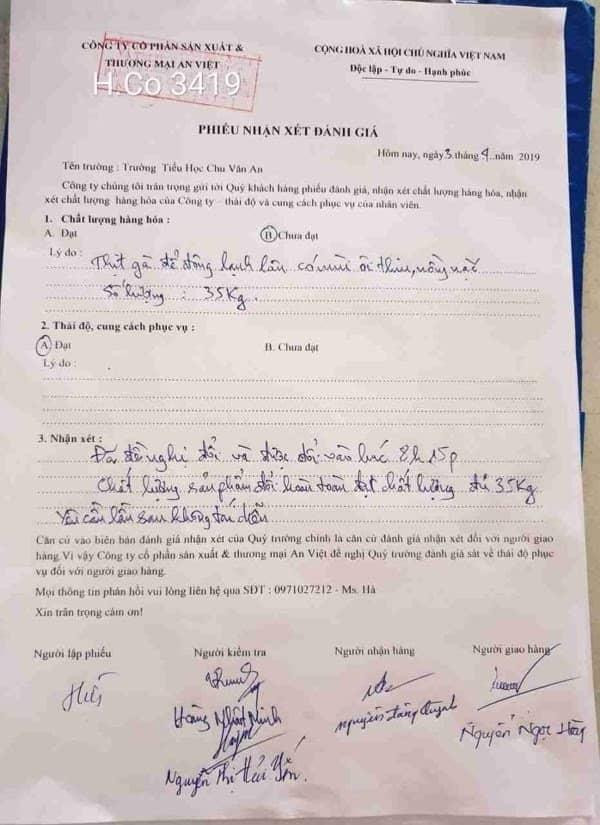 CÔNG TY CỔ PHẦN SẢN XUẤT &
THƯƠNG MẠI AN VIỆT
CỘNG HOÀ XÃ HỘI CHỦ NGHĨA VIỆT NAM
Độc lập - Tự do - Hạnh phúc
H.Co 3419
PHIẾU NHẬN XÉT ĐÁNH GIÁ
Hôm nay, ngày 3 tháng 4 năm 2019
Tên trường : Trường Tiểu Học Chu Văn An
Công ty chúng tôi trân trọng gửi tới Quý khách hàng phiếu đánh giá, nhận xét chất lượng hàng hóa, nhận
xét chất lượng hàng hóa của Công ty – thái độ và cung cách phục vụ của nhân viên.
1. Chất lượng hàng hóa :
A. Đạt B Chưa đạt
Lý do : Thịt gà để đông lạnh lâu có mùi ôi thiu, nồng nặc
Số lượng : 35Kg.
2. Thái độ, cung cách phục vụ :
A Đạt B. Chưa đạt
Lý do :
3. Nhận xét :
Đã đề nghị đổi và được đổi vào lúc 8h15p
Chất lượng sản phẩm đổi hoàn toàn đạt chất lượng đủ 35Kg
Yêu cầu lần sau không tái diễn
Căn cứ vào biên bản đánh giá nhận xét của Quý trường chính là căn cứ đánh giá nhận xét đối với người giao
hàng.Vì vậy Công ty cổ phần sản xuất & thương mại An Việt đề nghị Quý trường đánh giá sát về thái độ phục
vụ đối với người giao hàng.
Mọi thông tin phản hồi vui lòng liên hệ qua SĐT : 0971027212 - Ms. Hà
Xin trân trọng cám ơn!
Người lập phiếu Người kiểm tra Người nhận hàng Người giao hàng
Hoàng Nhật Minh
Nguyễn Đăng Quỳnh
Nguyễn Ngọc
Nguyễn Thị Hải Yến.